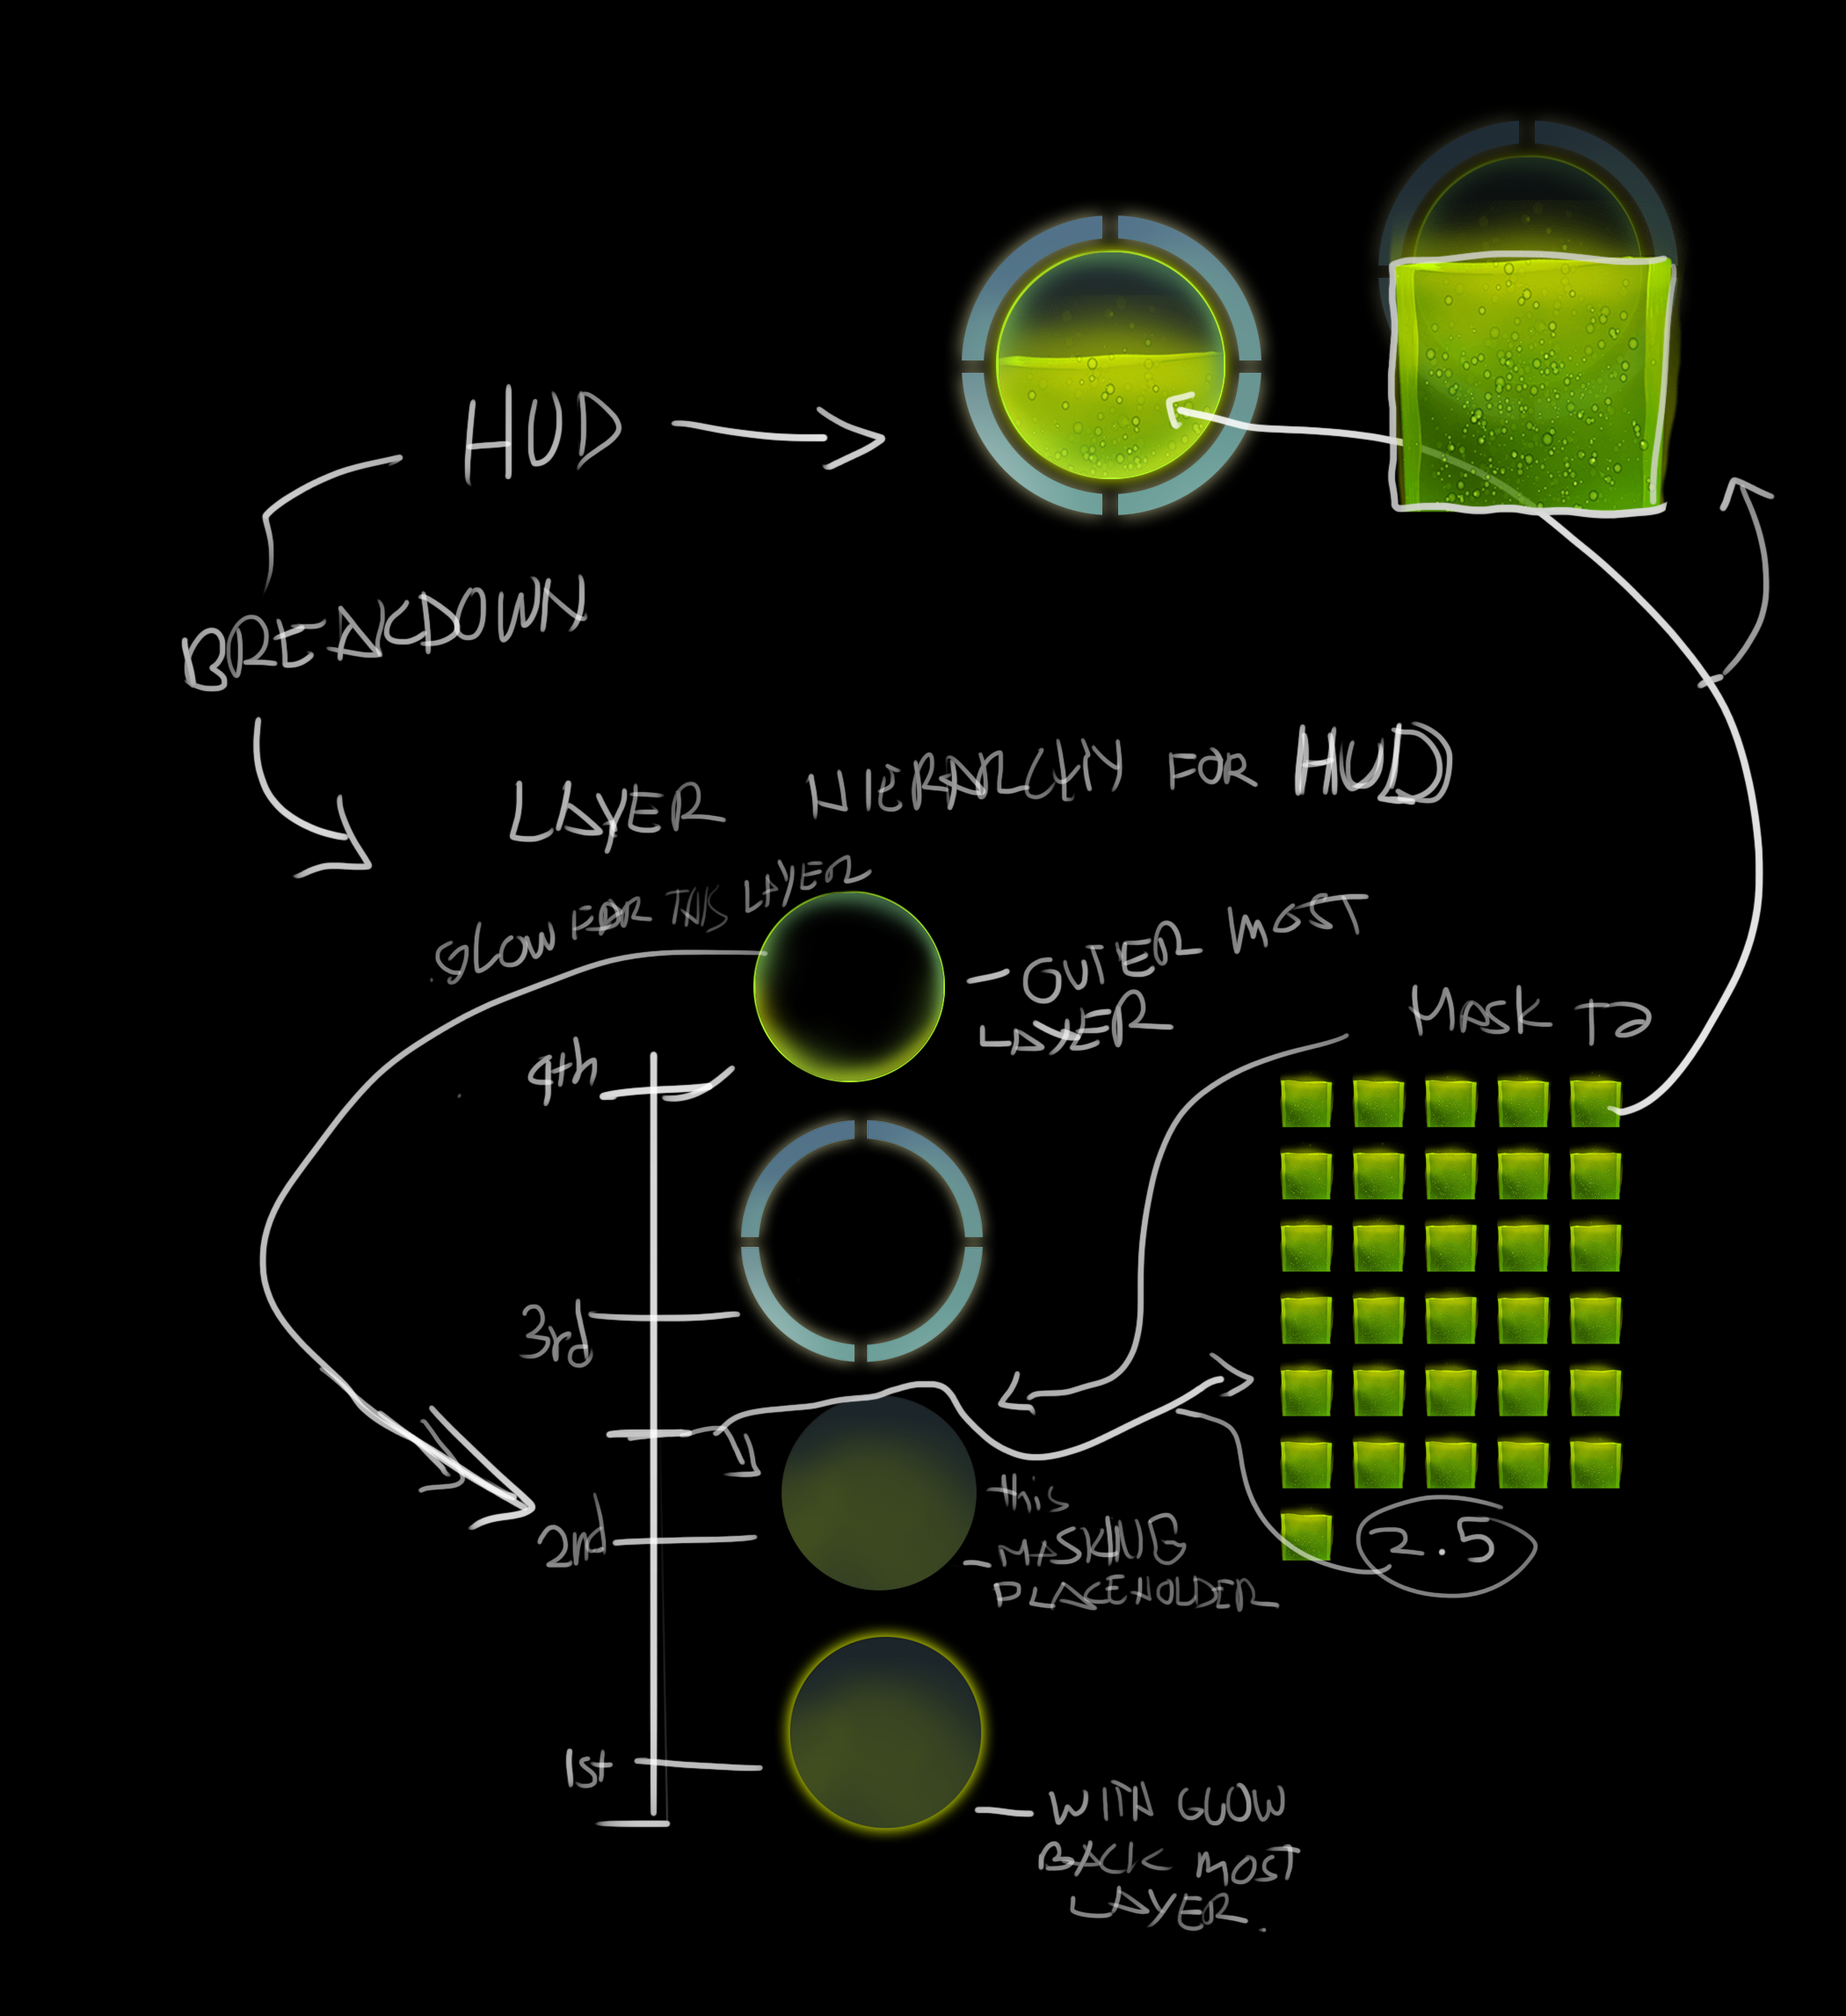 HUD
BREAKDOWN
LAYER HIERARCHY FOR HUD
GLOW FOR THIS LAYER
OUTER MOST
LAYER
MASK TO
4th
3rd
2nd
this
MASKING
PLACEHOLDER
2.5
1st
WITH GLOW
BACK MOST
LAYER.